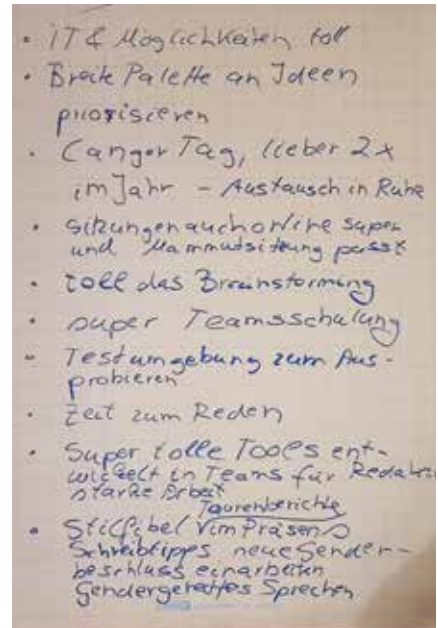 · IT & Möglichkeiten toll
· Breite Palette an Ideen
priorisieren
· Langer Tag, lieber 2x
im Jahr - Austausch in Ruhe
· sitzungen auch online super
und Mammutsitzung passt
· toll das Brainstorming
· super Teamsschulung
- Testumgebung zum Aus-
probieren
· Zeit zum Reden
· Super tolle Tools ent-
wickelt in Teams für
starke Arbeit
Tourenberichte
· Stilfibel im Präsens
Schreibtipps neue Gender-
beschluss einarbeiten
Gendergerechtes Sprechen